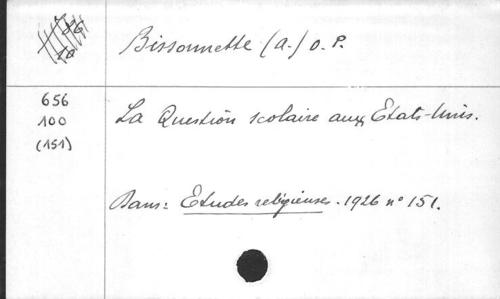 Bissonnette (A.) O.P.
656
100
(151)
La Question scolaire aux Etats-Unis.
Dans: Etudes religieuses. 1926 n° 151.